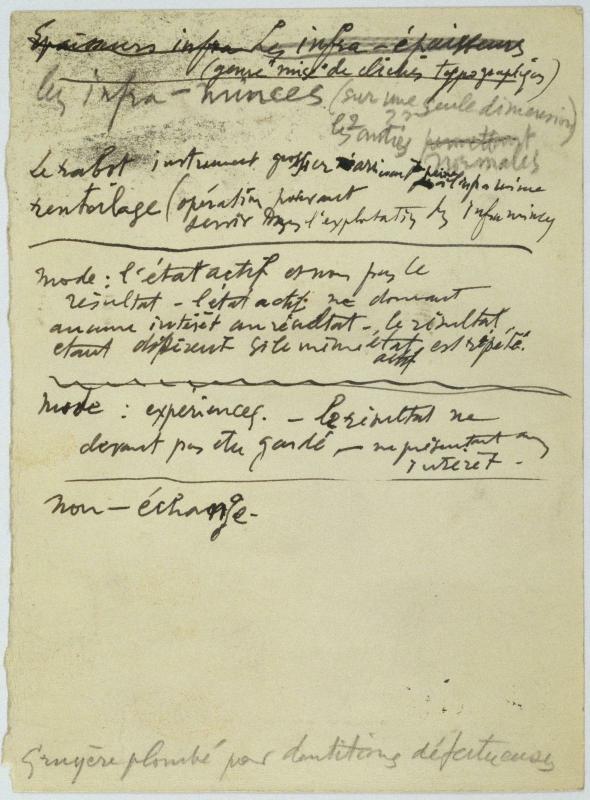 Epaisseurs infra Les infra-épaisseurs
(genre "mise" de clichés typographiques)
les infra-minces (sur une seule dimension)
les 2 autres
normales
Le rabot instrument grossier
rentoilage (opération pouvant
servir dans l'exploitation des inframinces
mode : l'état actif et non pas le
résultat - l'état actif ne donnant
aucun intérêt au résultat - le résultat
étant différent si le même état est répété.
actif
mode : expériences. - le résultat ne
devant pas être gardé - ne présentant aucun
intérêt -
non-échange-
Gruyère plombé pour dentitions défectueuses